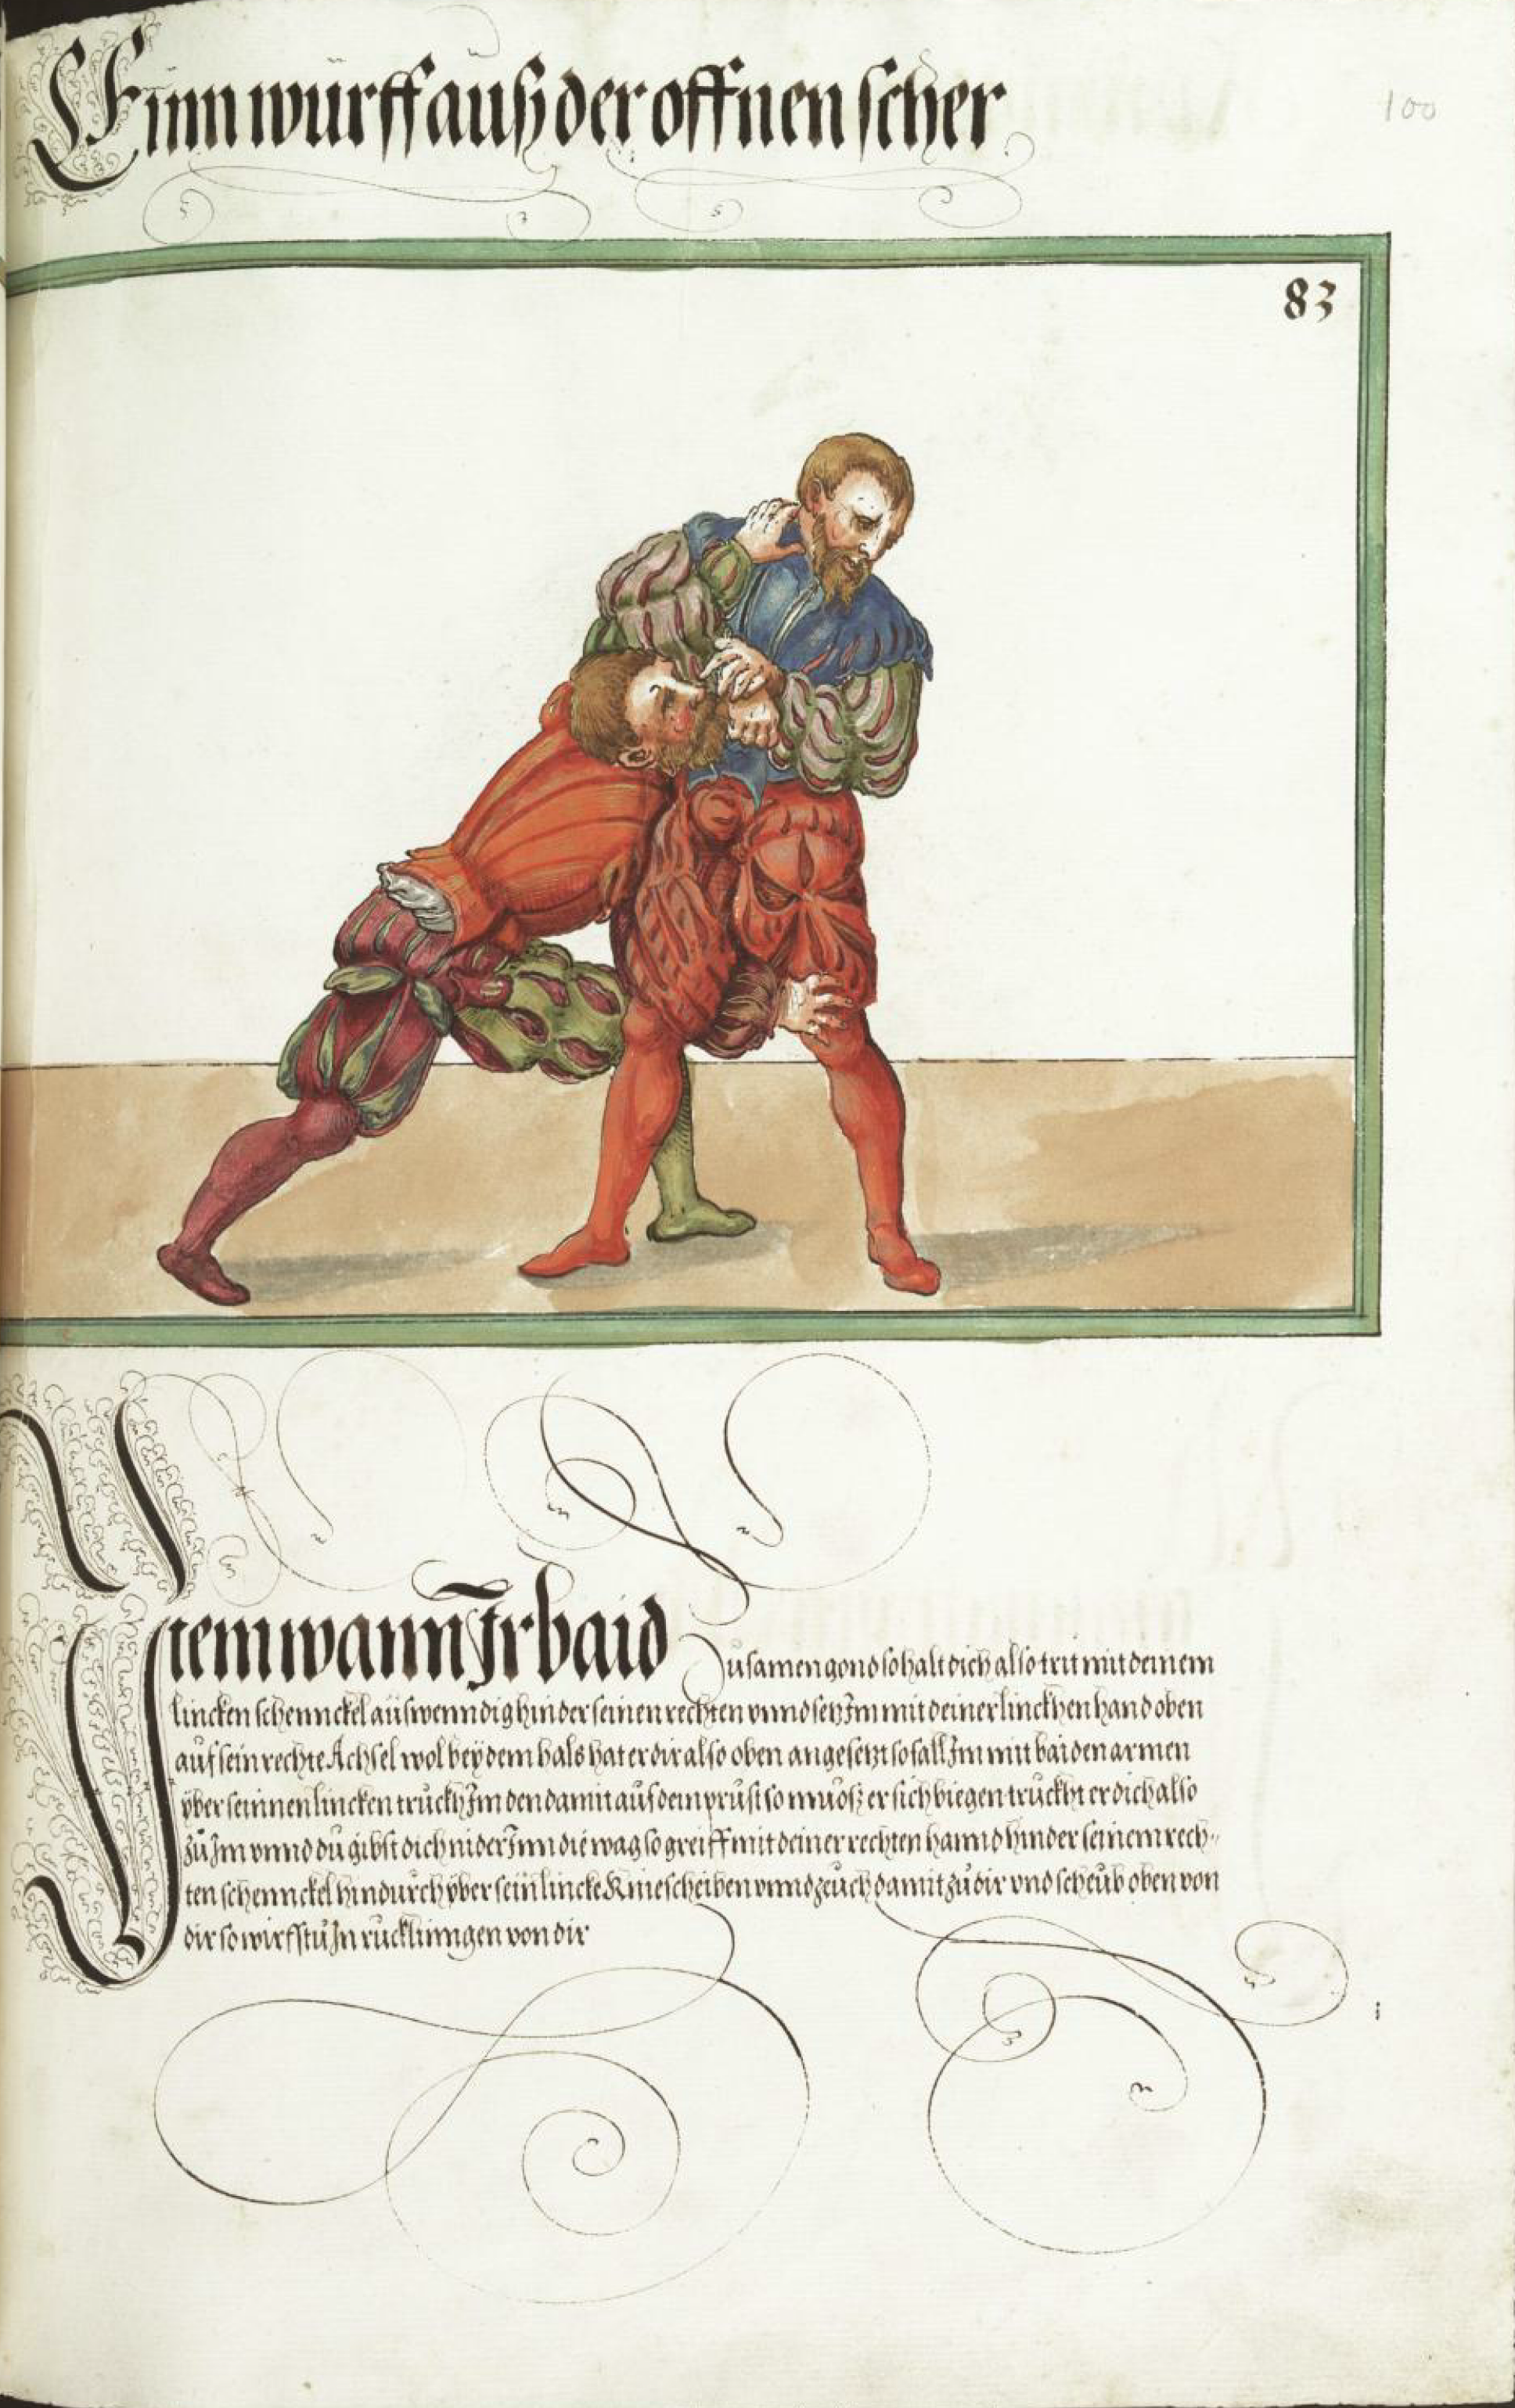 Einn würff auß der offnen scher
100
83
Item wann Ir baid zusamen gond so halt dich also trit mit deinem
lincken schennckel auswenndig hinder seinen rechten vnnd setz Im mit deiner linckhen hand oben
auf sein rechte Achsel wol bey dem hals hat er dir also oben angesetzt so fall Im mit baiden armen
über seinnen lincken truckh Im den damit auf dein prust so muoß er sich biegen truckht er dich also
zu Im vnnd du gibst dich nider Inn die wag so greiff mit deiner rechten hannd hinder seinem rech-
ten schennckel hindurch über sein lincke Kniescheiben vnnd zeuch damit zu dir vnd scheub oben von
dir so wirfstu In rucklinngen von dir